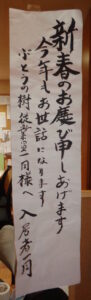 新春のお慶び申しあげます
今年もお世話になります
ぶどうの樹 従業員一同様へ 入居者一同